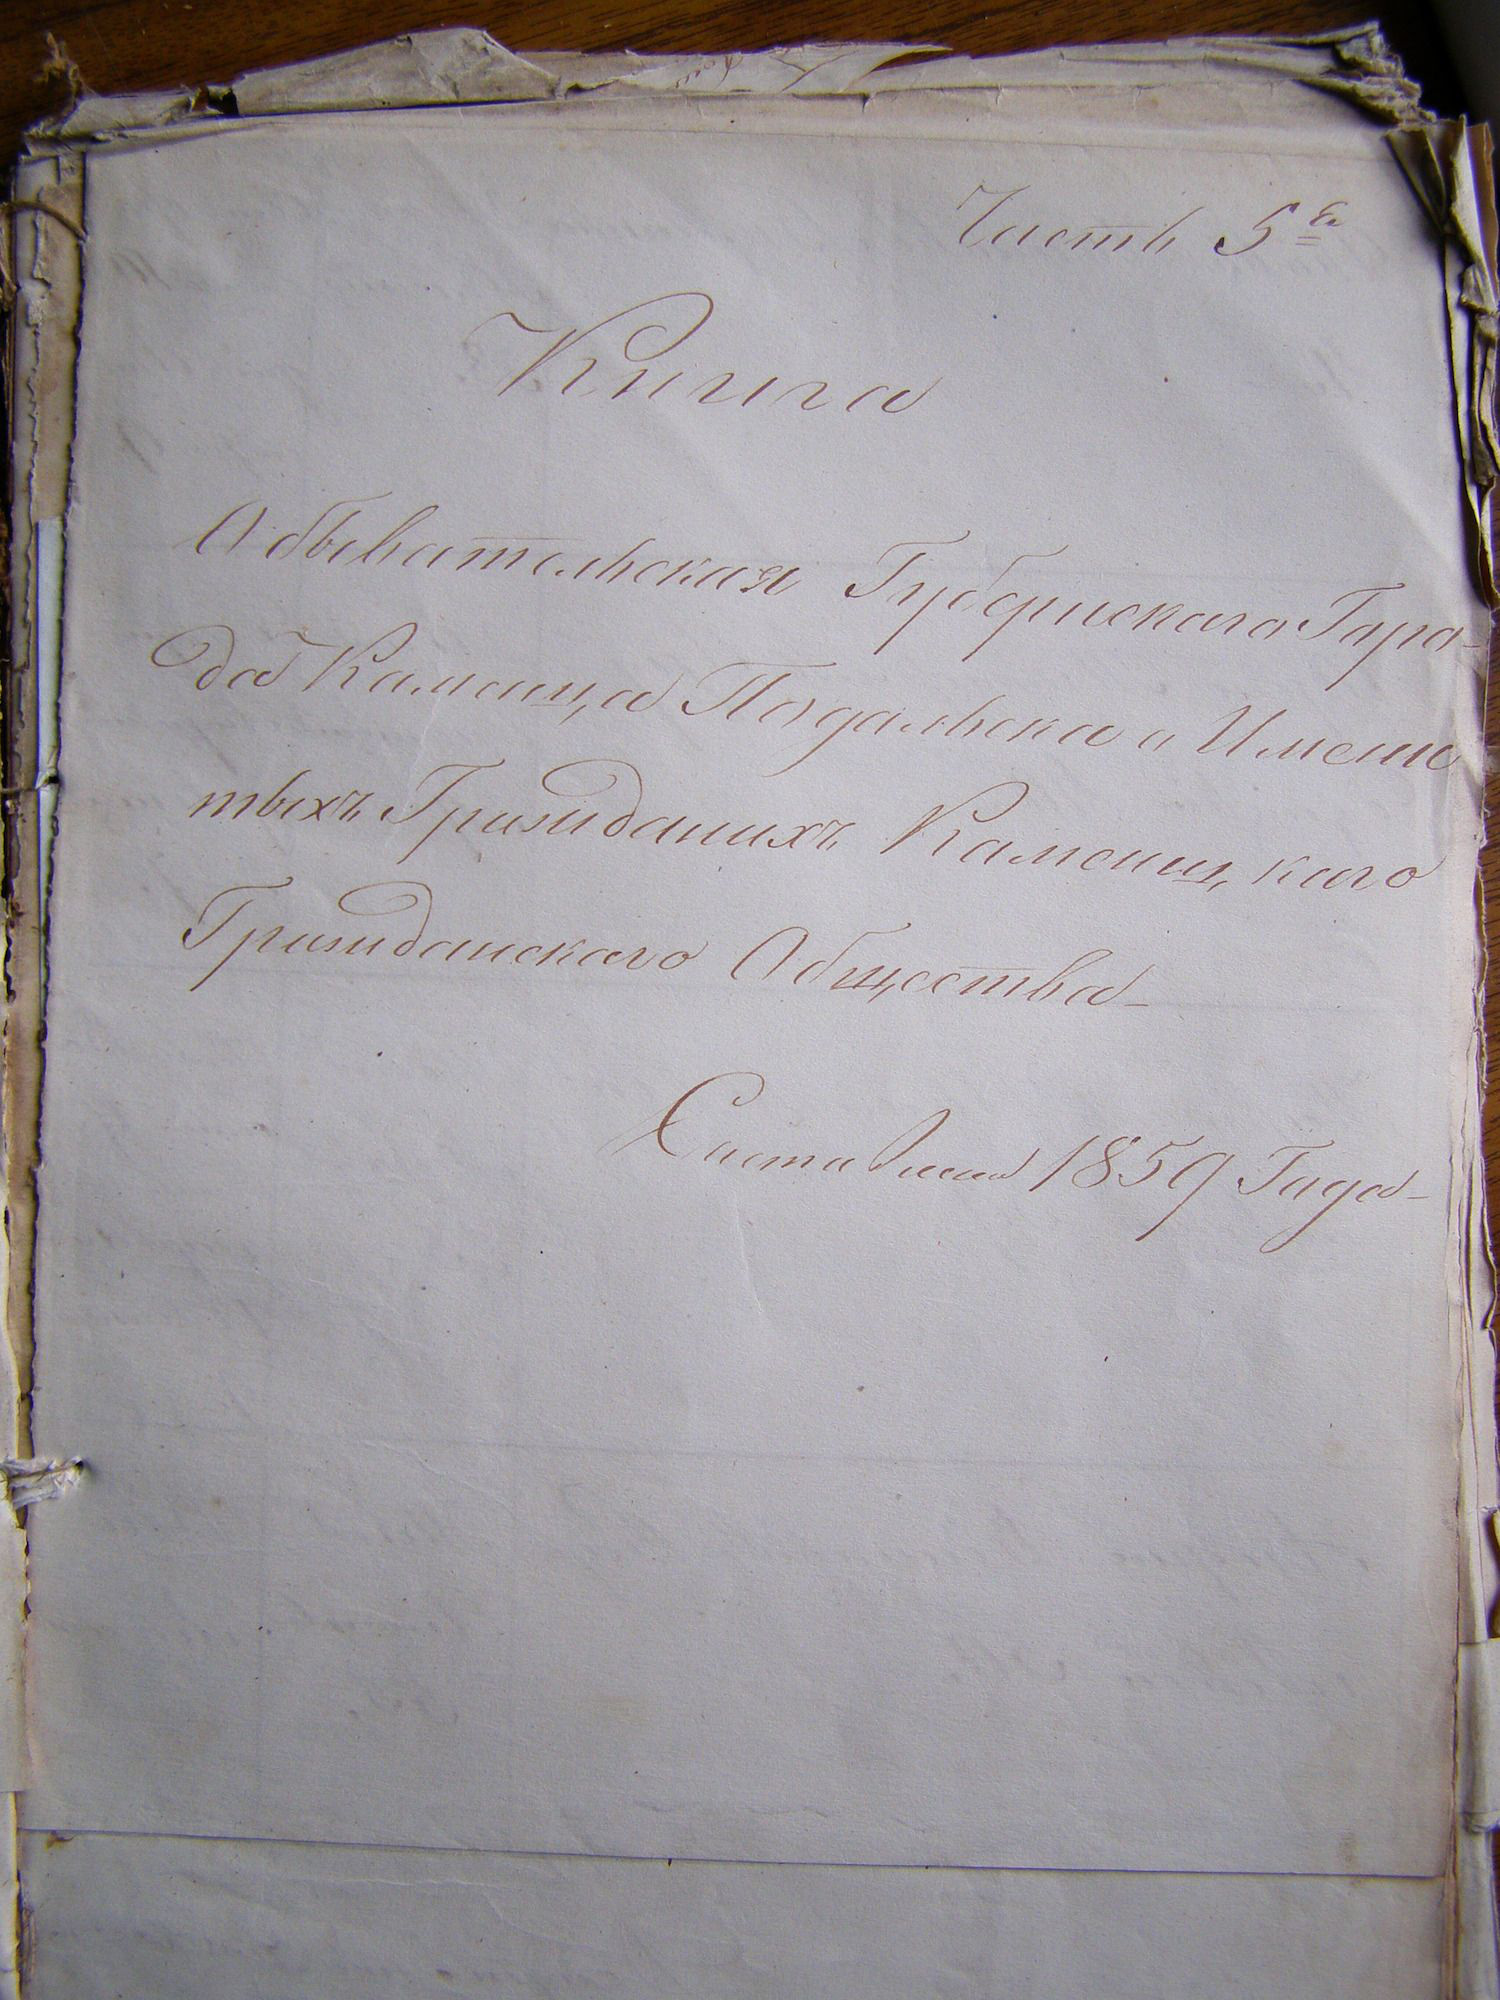 Часть 5ª
Книга
Обывательская Губернскаго Горо-
да Каменца Подольска о Имени
тыхъ Гражданахъ Каменец,каго
Гражданскаго Общества
Составлена 1859 Года